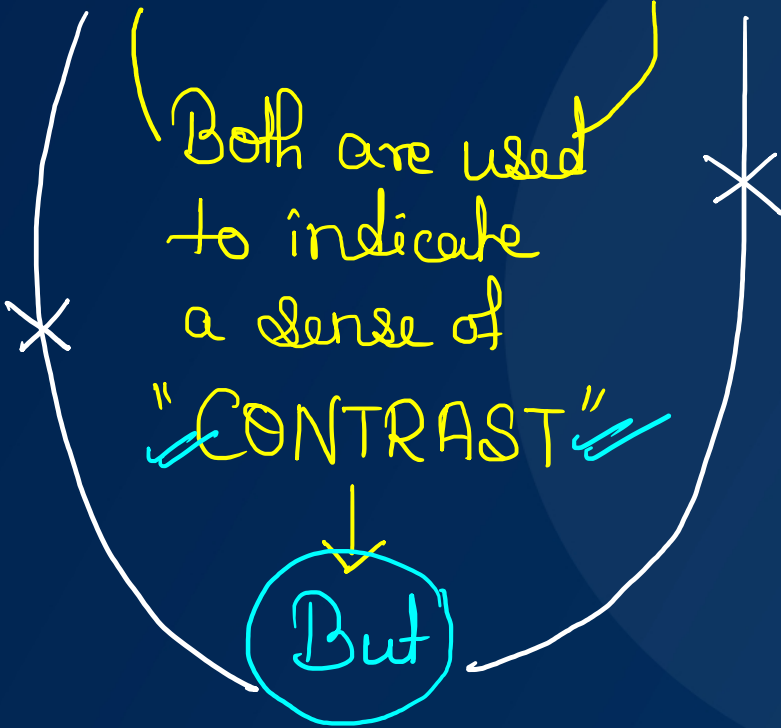 Both are used
to indicate
a sense of
"CONTRAST"
But